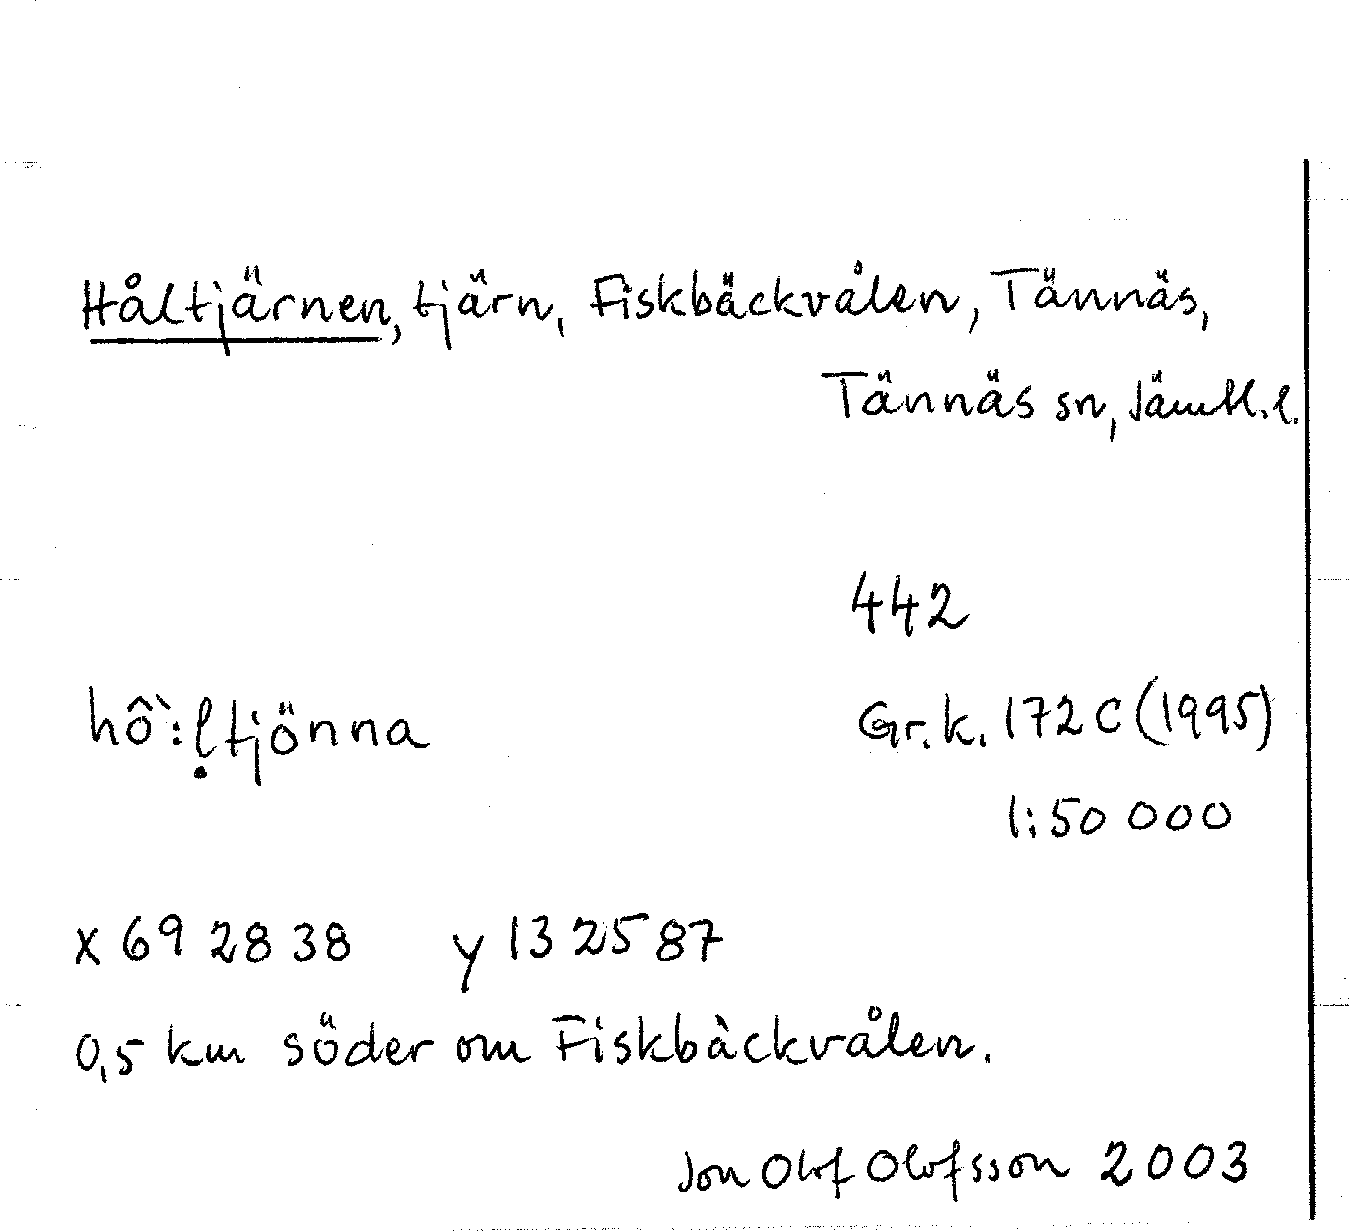 Håltjärnen, tjärn, Fiskbäckvålen, Tännäs,
Tännäs sn, Jämtl. l.
442
hô`:ḷtjönna
Gr.k. 172 C (1995)
1:50 000
x 69 28 38 y 13 25 87
0,5 km söder om Fiskbäckvålen.
Jon Olof Olofsson 2003